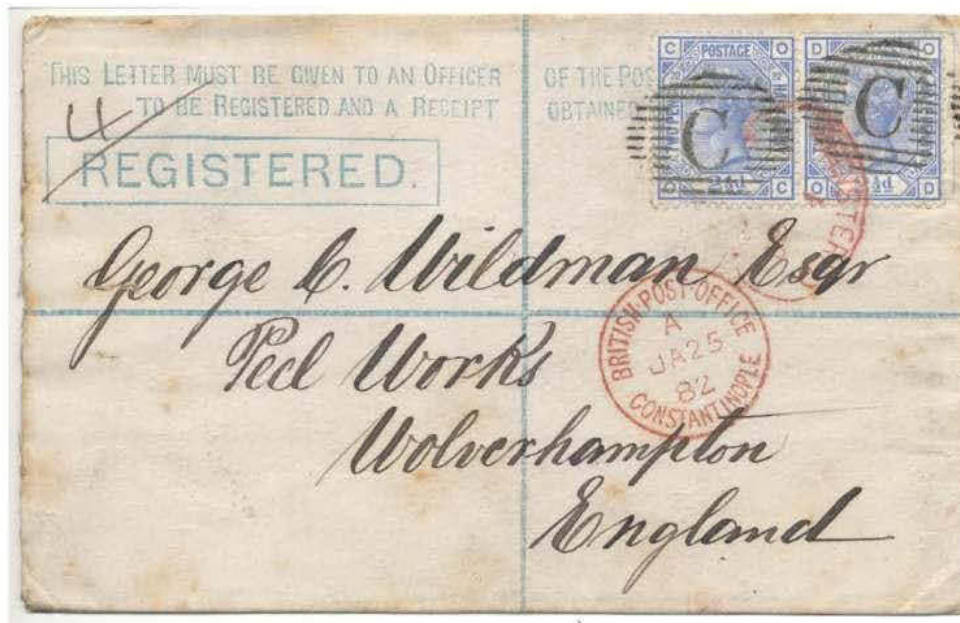 THIS LETTER MUST BE GIVEN TO AN OFFICER OF THE POS
TO BE REGISTERED AND A RECEIPT OBTAINED
4
REGISTERED.
C POSTAGE O
D O
C
C
O C
2½d
O D
½d
George C. Wildman Esqr
Peel Works
Wolverhampton
England
BRITISH·POST·OFFICE
A
JA 25
82
CONSTANTINOPLE